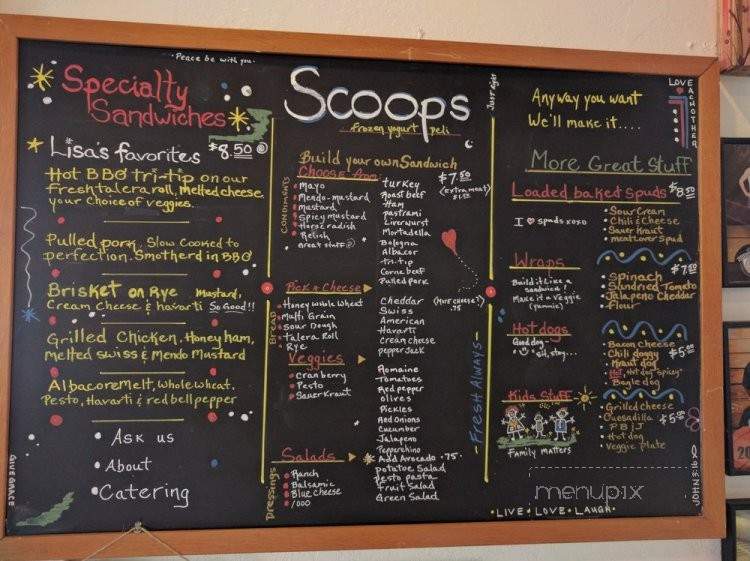 · Peace be with you ·
Specialty
Sandwiches
Lisa's favorites $8.50
Hot BBQ tri-tip on our
Fresh talera roll, Melted cheese,
your choice of veggies..
Pulled pork, Slow Cooked to
perfection. Smotherd in BBQ
Brisket on Rye Mustard,
Cream Cheese & havarti So Good!!
Grilled Chicken, Honey ham,
melted swiss & Mendo Mustard
Albacore melt, whole wheat.
Pesto, Havarti & red bell pepper
• Ask us
• About
• Catering
GIVE GRACE
Scoops
frozen yogurt deli
Build your own Sandwich
Choose
$7.50
(extra meat)
$1.50
CONDIMENTS
• Mayo
• Mendo-mustard
• mustard
• Spicy mustard
• Horse radish
• Relish
Great stuff
turkey
Roast beef
Ham
pastrami
Liverwurst
Mortadella
Bologna
Albacor
Tri-tip
Corne beef
Pulled pork
Pick a Cheese
BREAD
• Honey whole Wheat
• Multi Grain
• Sour Dough
• Talera Roll
• Rye
Cheddar
Swiss
American
Havarti
Cream cheese
pepper Jack
(More cheese?)
.75
Veggies
• Cranberry
• Pesto
• Sauerkraut
Romaine
Tomatoes
Red pepper
olives
Pickles
Red Onions
Cucumber
Jalapeno
Pepperchino
Add Avocado .75.
Salads
Dressings
• Ranch
• Balsamic
• Blue cheese
• 1000
potatoe Salad
pesto pasta
Fruit Salad
Green Salad
Just right
FRESH ALWAYS
Anyway you want
We'll make it....
LOVE
EACHOTHER
More Great Stuff
Loaded baked Spuds $8.50
I ♥ spuds xoxo
• Sour Cream
• Chili & Cheese
• Sauer Kraut
• meat Lover Spud
Wraps $7.50
Build it Like a
sandwich!
Make it a Veggie
(yummie)
• Spinach
• Sundried Tomato
• Jalapeno Cheddar
• Flour
Hot dogs $5.00
Good dog..
sit, stay...
• Bacon Cheese
• Chili doggy
• Kraut dog
• Hot, Hot dog "spicy"
Bagle dog
Kids Stuff $5.00
Family matters
• Grilled cheese
• Quesadilla
• P B i J
• Hot dog
• Veggie plate
menupix
JOHN 3:16
• LIVE • LOVE • LAUGH •